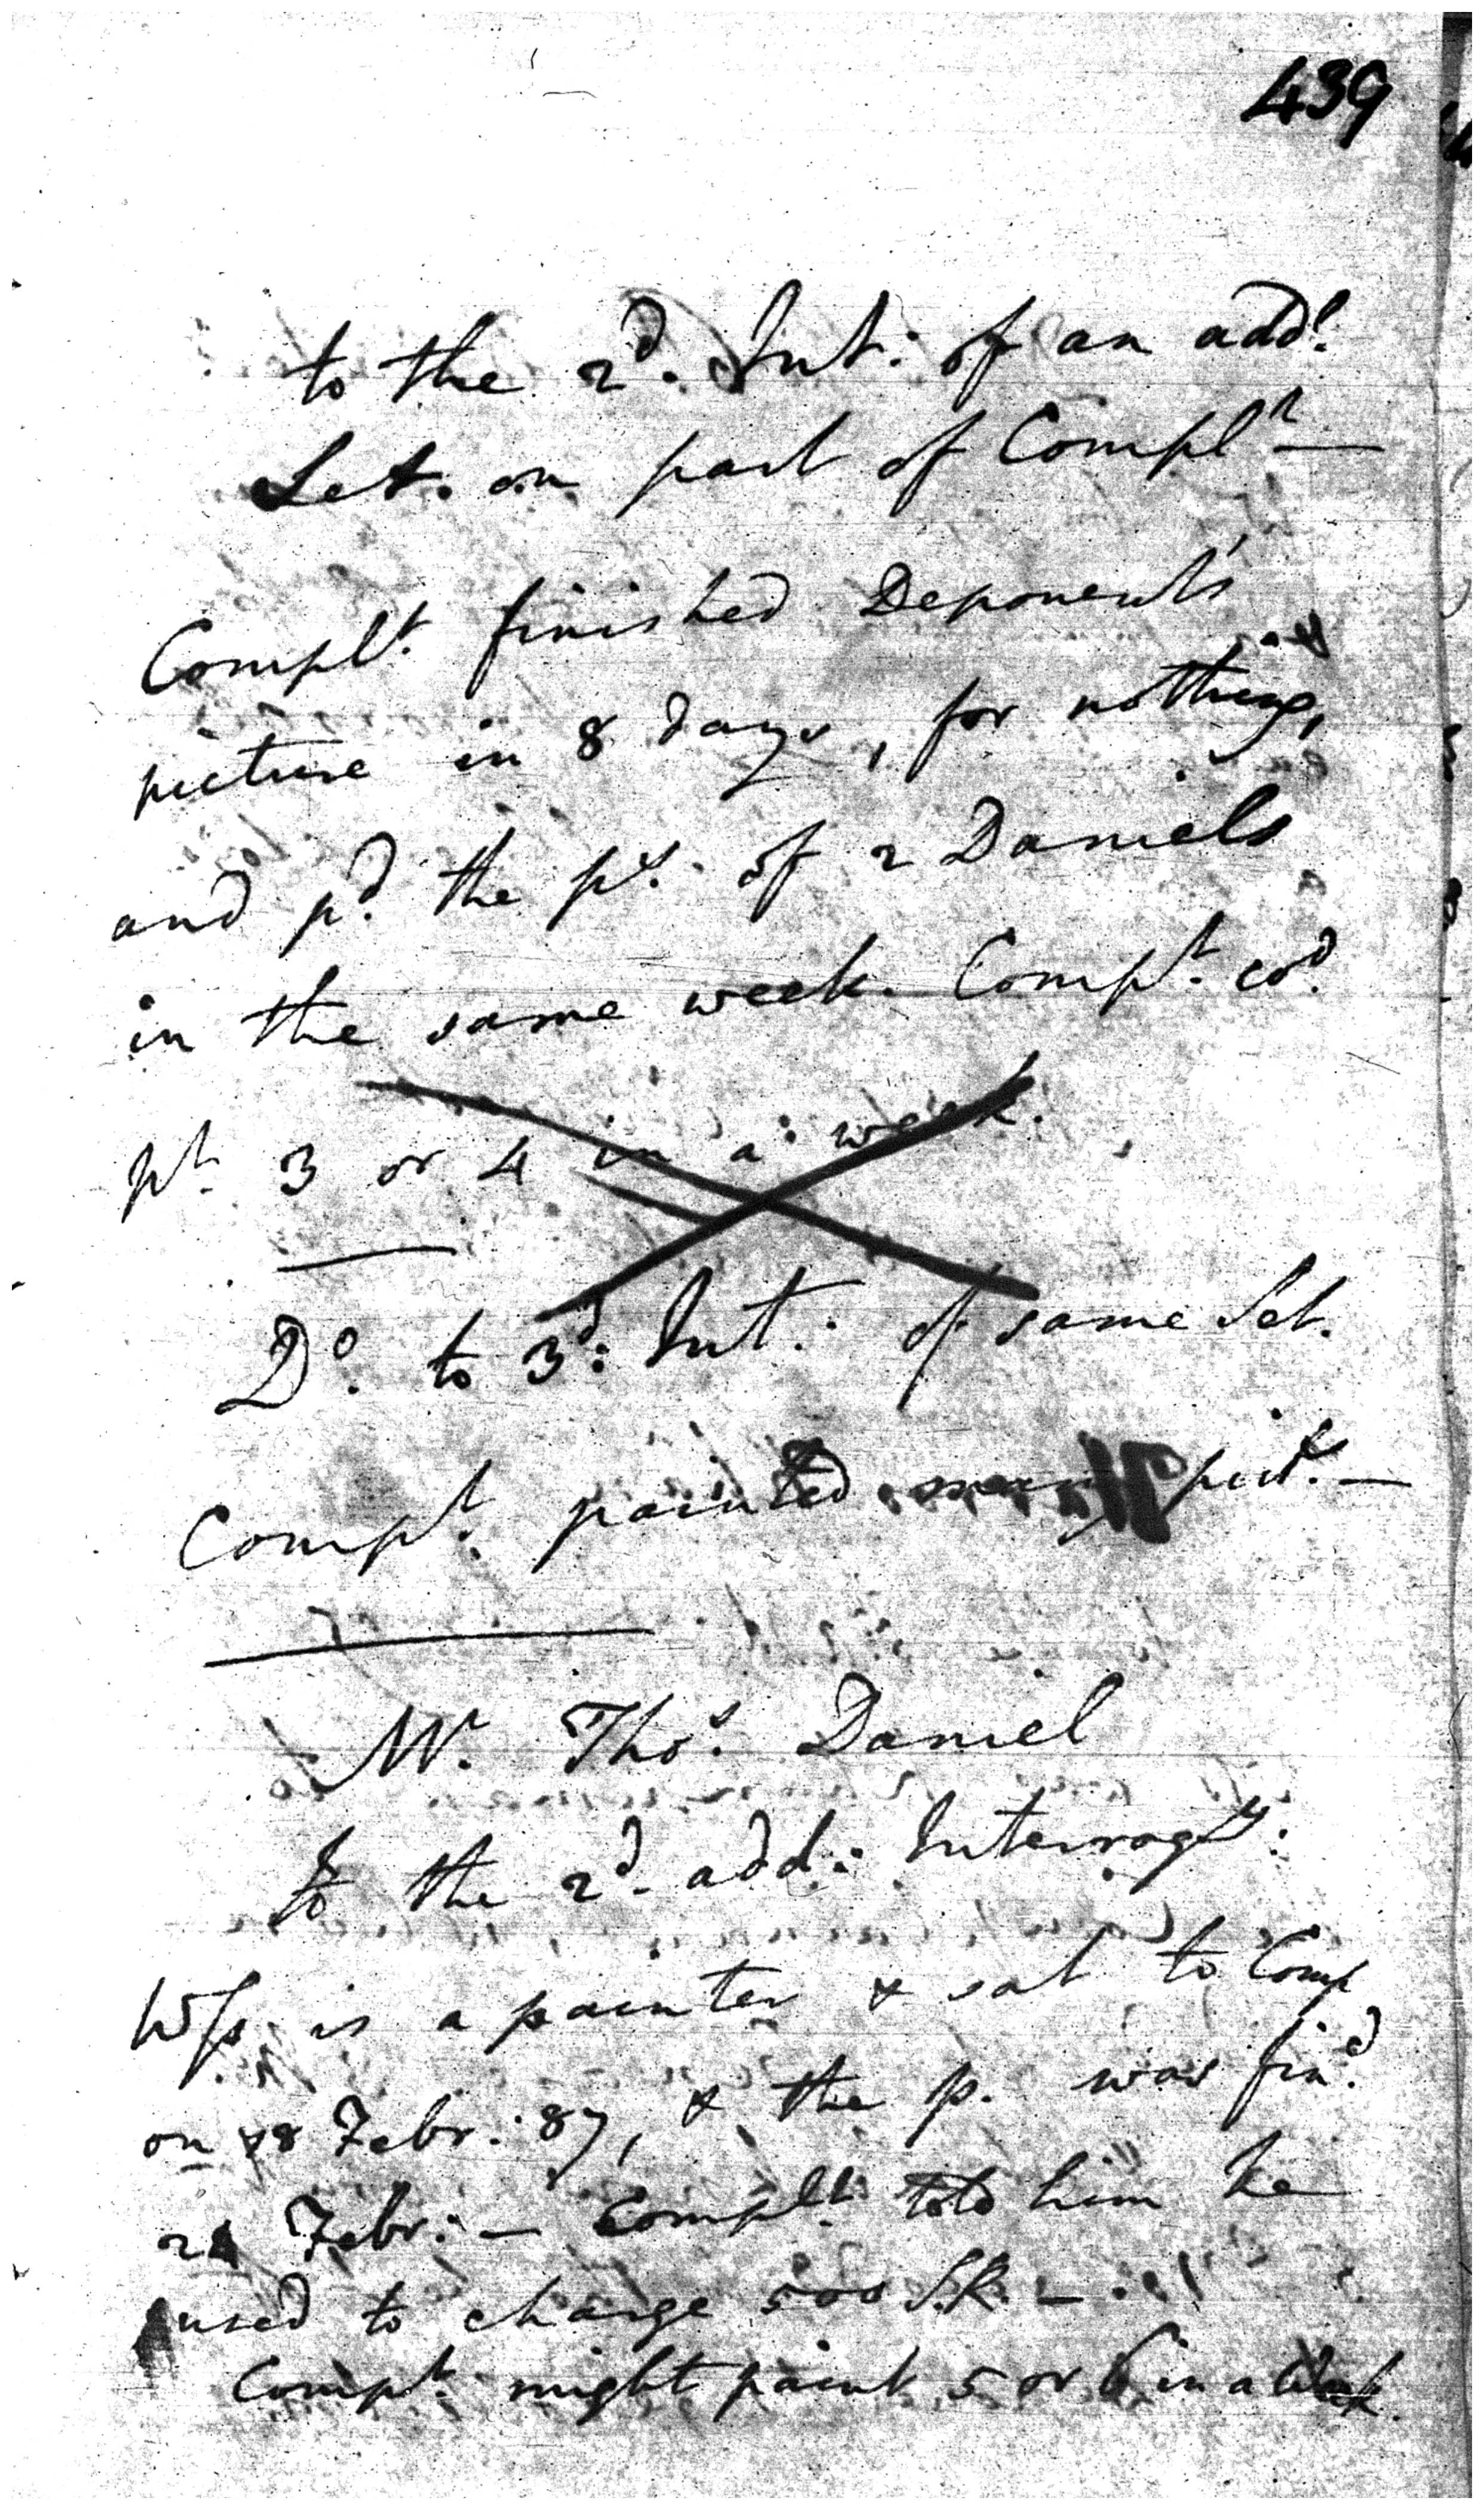 439
to the 2d. Int: of an addl.
Set. on part of Complt —
Complt. finished Deponents'
picture in 8 days, for nothing,
and pd. the ps. of 2 Daniels
in the same week. Compt. cod.
pt. 3 or 4 in a week.
Do. to 3d: Int: of same Set.
Compt. painted many pics. —
Mr. Thos. Daniel
To the 2d. add: Interrogy:
Ws is a painter & sat to Comp
on 18 Febr: 87, & the p. was find.
Febr: — Complt. told him he
used to charge 500 S.R. —
Compt. might paint 5 or 6 in a Week.